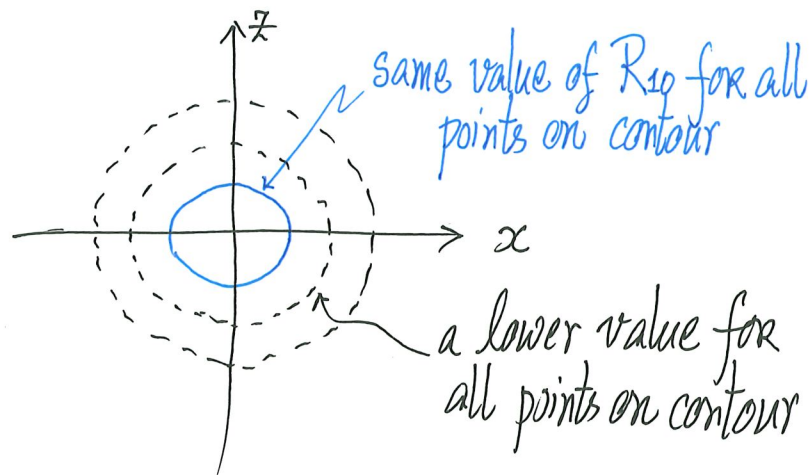 z
same value of R₁₀ for all
points on contour
x
a lower value for
all points on contour